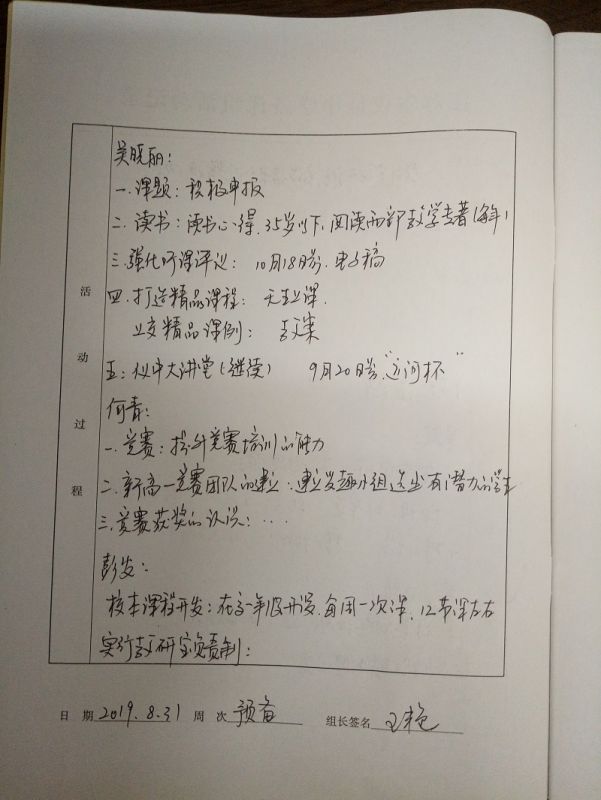 吴晓丽：
一.课题：积极申报
二.读书：读书心得.35岁以下.阅读两部教学专著(每年)
三.强化听课评议：10月18日前.电子稿
四.打造精品课程：
上交精品课例：教案
五：仪中大讲堂(继续) 9月20日前."运河杯"
何青：
一.竞赛：提升竞赛培训的能力
二.新高一竞赛团队的建立：建立兴趣小组选出有潜力的学生
三.竞赛获奖的认定：...
彭发：
校本课程开发：在高一年级开设.每周一次课.12节课左右
实行教研室负责制：
活动过程
日期 2019.8.31 周次 预备 组长签名 王艳